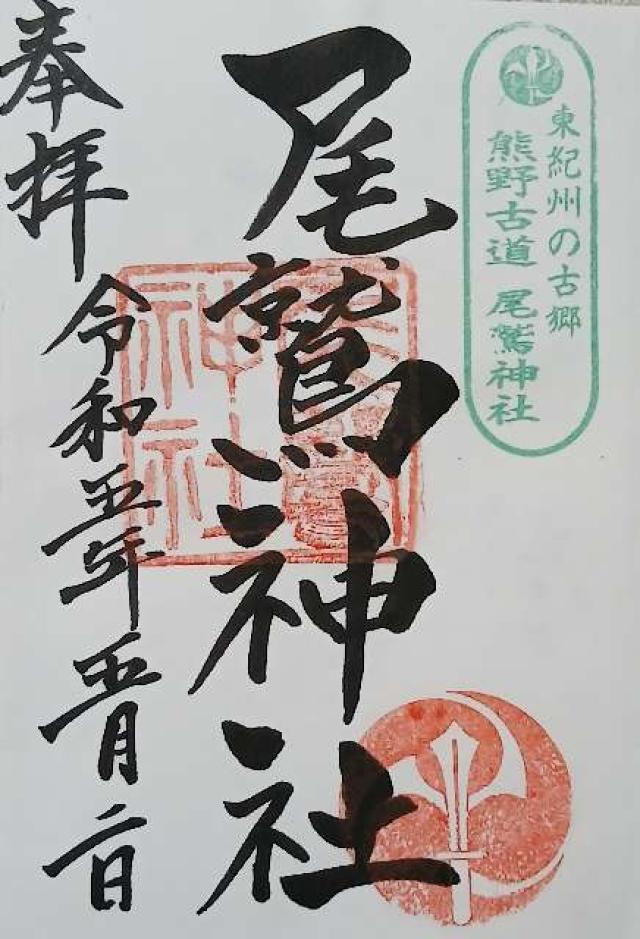 東紀州の古郷
熊野古道 尾鷲神社
尾鷲神社
奉拝
令和五年五月二日